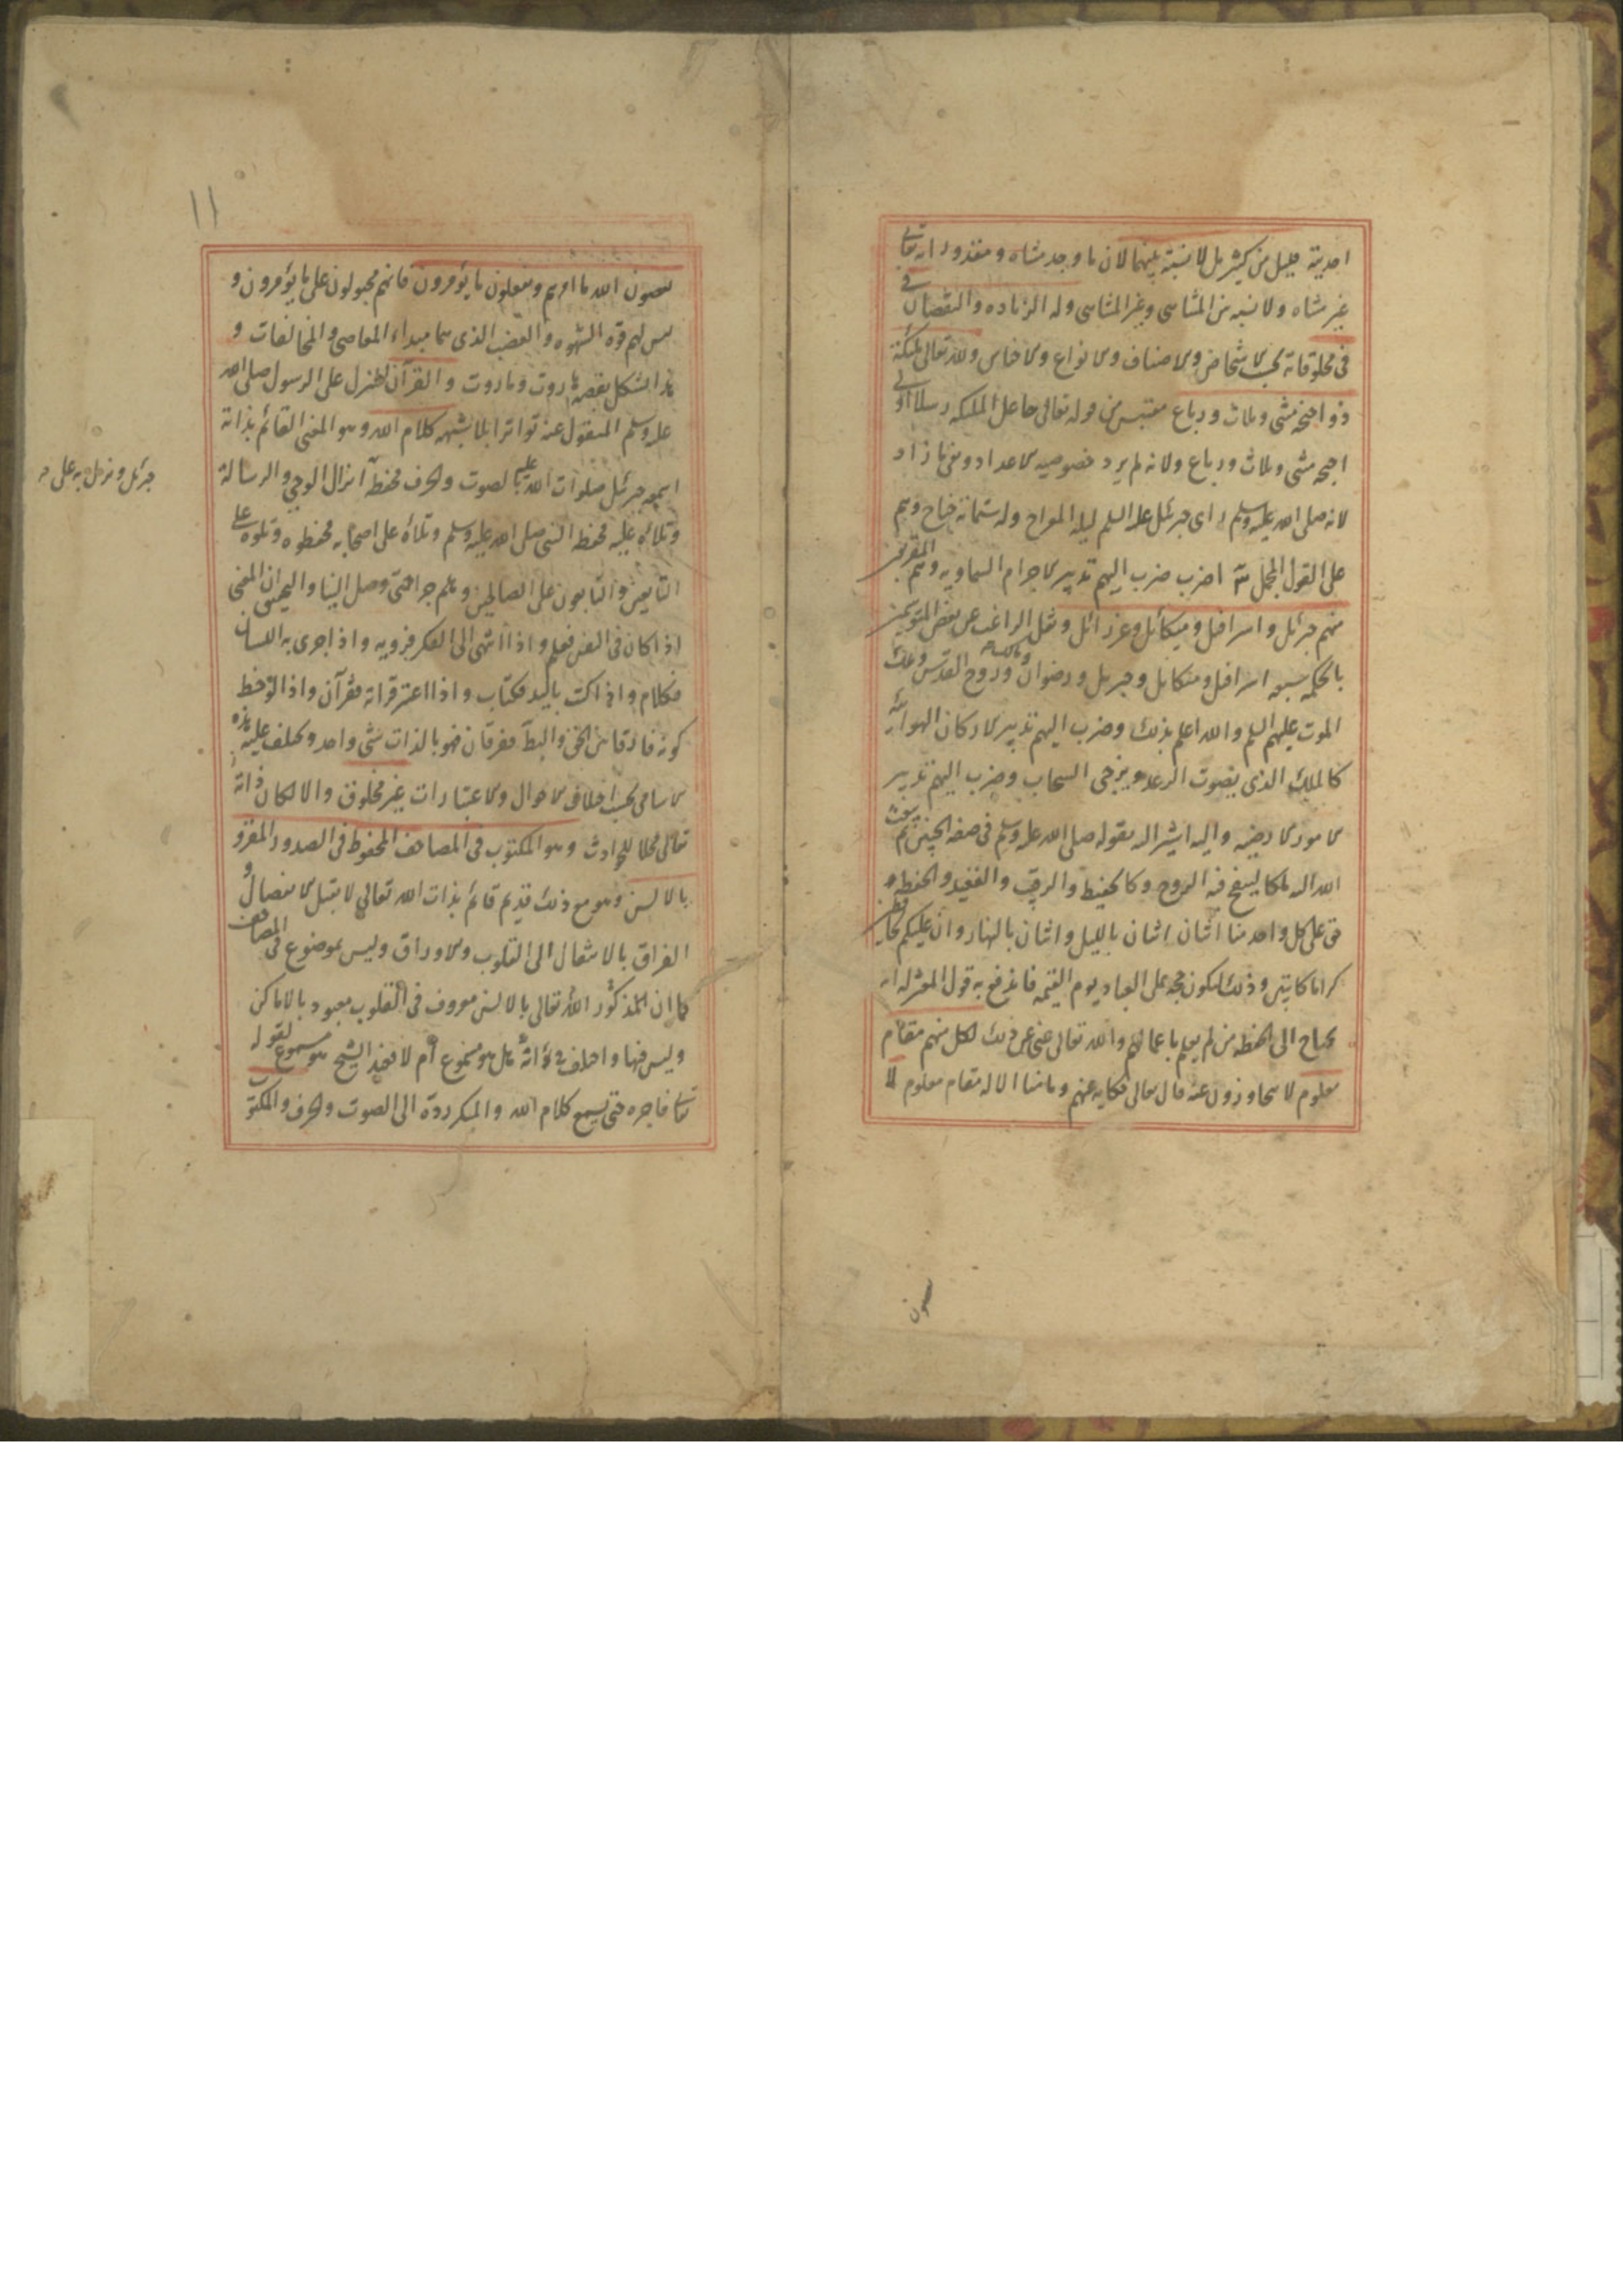 احديته قليل من كثير بل لا نسبة بينهما لان ما وجد متناه و مقدورا انه تعالى
غير متناه ولا نسبه بين المتناهى وغير المتناهى وله الزياده والنقصان فى
فى مخلوقاته بحسب الاشخاص والاصناف والانواع والاجناس ولله تعالى ملئكة
ذو اجنحة مثنى وثلاث ورباع مقتبس من قوله تعالى جاعل الملئكة رسلا اولى
اجنحة مثنى وثلاث ورباع ولانه لم يرد خصوصيه الاعداد ونفى ما زاد
لانه صلى الله عليه وسلم راى جبرئيل عليه السلم ليلة المعراج وله ستمائة جناح وهم
على القول المجمل ثلثة اضرب ضرب اليهم تدبير الاجرام السماويه وهم المقربون
منهم جبرئل واسرافيل وميكائل وعزرائل ونقل الراغب عن بعض
بالحكمه سبعه اسرافيل وميكائل وجبريل ورضوان ومالك وروح القدس وملك
الموت عليهم السلم والله اعلم بذلك وضرب اليهم تدبير الاركان الهوائية
كالملك الذى بصوت الرعد ويزجى السحاب وضرب اليهم تدبير
الامور الارضيه واليه اشير اليه بقوله صلى الله عليه وسلم فى صفه الجنين ثم يبعث
الله اليه ملكا لينفخ فيه الروح وكالحفيظ والرقيب والقعيد والحفظه
فى على كل واحد منا اثنان اثنان بالليل واثنان بالنهار وان عليكم لحافظين
كراما كاتبين وذلك ليكون حجه على العباد يوم القيمه فاندفع به قول المعتزله انه
يحتاج الى الحفظه من لم يعلم باعمالهم والله تعالى غنى عن ذلك لكل منهم مقام
معلوم لا يتجاوزون عنه قال تعالى حكاية عنهم وما منا الا له مقام معلوم لا
يعصون
١١
يعصون الله ما امرهم ويفعلون ما يؤمرون فانهم مجبولون على ما يؤمرون و
ليس لهم قوة الشهوه والغضب الذى هما مبداء المعاصى والمخالفات و
هذا يشكل بقصة هاروت وماروت والقرآن المنزل على الرسول صلى الله
عليه وسلم المنقول عنه تواترا بلا شبهه كلام الله وهو المعنى القائم بذاته
اسمعه جبرئيل صلوات الله عليه بالصوت والحرف فحفظه انزال الوحى والرسالة
جبرئل ونزل به على
وتلاه عليه فحفظه النبى صلى الله عليه وسلم وتلاه على اصحابه فحفظوه وتلوه على
التابعين والتابعون على الصالحين وهلم جرا حتى وصل الينا واليهم ان المعنى
اذا كان فى النفس فعلم واذا انتهى الى الفكر فرويه واذا جرى به اللسان
فكلام واذا كتب باليد فكتاب واذا اعتبر قراته فقرآن واذا لوحظ
كونه فارقا بين الحق والباطل ففرقان فهو بالذات شئ واحد ويختلف عليه هذه
الاسامى بحسب اختلاف الاحوال والاعتبارات غير مخلوق والا لكان ذاته
تعالى محلا للحوادث وهو المكتوب فى المصاحف المحفوظ فى الصدور المقرو
بالالسن وهو مع ذلك قديم قائم بذات الله تعالى لا يقبل الانفصال و
الفراق بالانتقال الى القلوب والاوراق وليس بموضوع فى المصاحف
كما ان المذكور الله تعالى بالالسن معروف فى القلوب معبود بالاماكن
وليس فيها واختلف فى انه هل هو مسموع ام لا فعند الشيخ هو مسموع لقوله
تعالى فاجره حتى يسمع كلام الله والمنكر رده الى الصوت والحرف والمكتوب